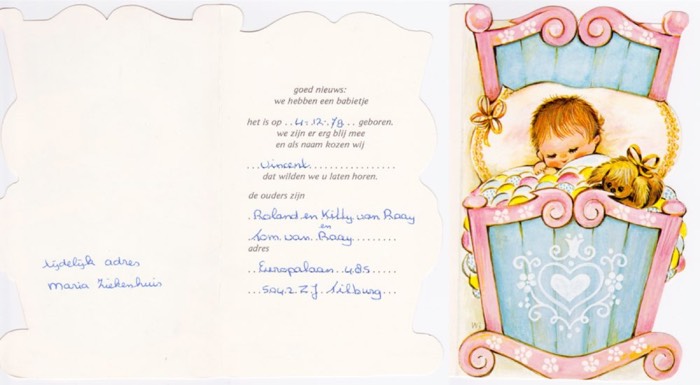 tijdelijk adres
Maria Ziekenhuis
goed nieuws:
we hebben een babietje
het is op ..4-12-78.. geboren.
we zijn er erg blij mee
en als naam kozen wij
...Vincent...................
dat wilden we u laten horen.
de ouders zijn
.Roland en Kitty van Raay
en
.Tom van Raay..........
adres
...Europalaan 485......
...5042 ZJ Tilburg........